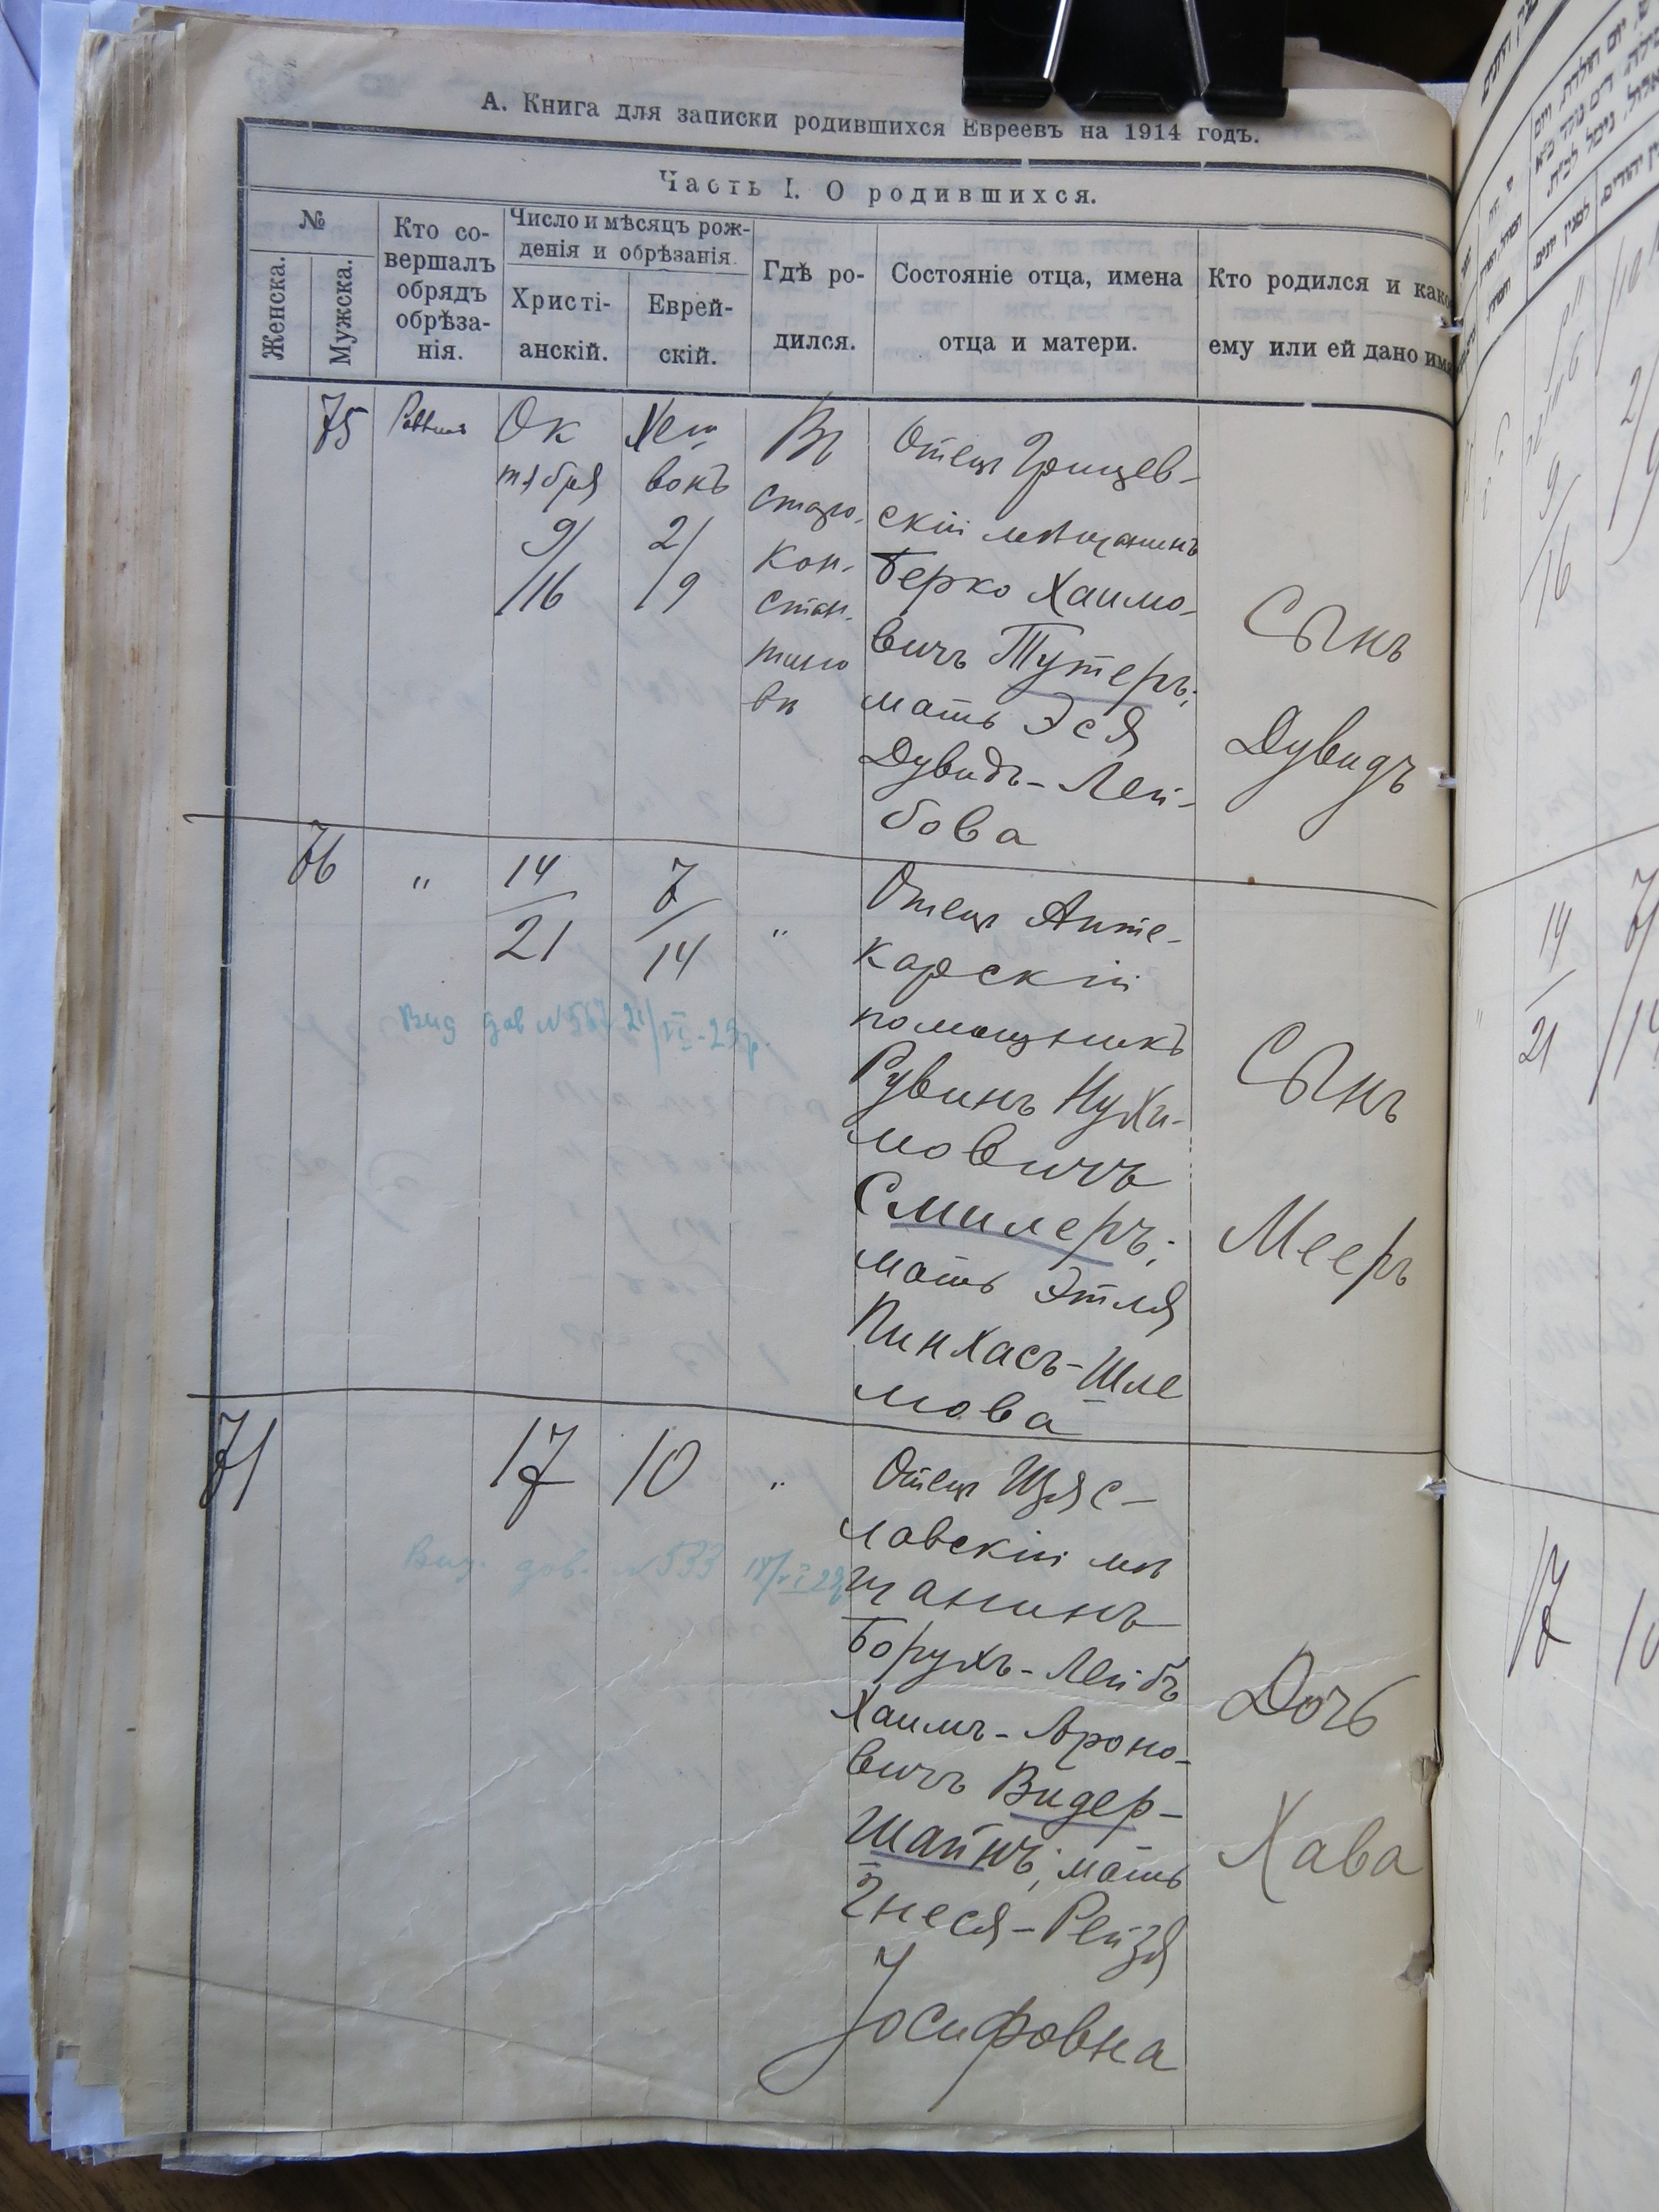 А. Книга для записки родившихся Евреевъ на 1914 годъ.
Часть I. О родившихся.
№
Женска.
Мужска.
Кто со-
вершалъ
обрядъ
обрѣза-
нія.
Число и мѣсяцъ рож-
денія и обрѣзанія.
Христі-
анскій.
Еврей-
скій.
Гдѣ ро-
дился.
Состояніе отца, имена
отца и матери.
Кто родился и како
ему или ей дано имя
75
Раввинъ
Ок
тября
9/
/16
Хеш
вонъ
2/
/9
Въ
Старо-
Кон-
стан-
тино
вѣ
Отецъ Грицев-
скій мѣщанинъ
Берко Хаимо-
вичъ Тутеръ;
мать Эся
Дувидъ-Лей-
бова
Сынъ
Дувидъ
76
"
14
21
7
14
"
Вид дов №567 21/VI-29р.
Отецъ Апте-
карскій
помощникъ
Рувинъ Нухи-
мовичъ
Смилеръ;
мать Этля
Пинхасъ-Шле
мова
Сынъ
Мееръ
71
17
10
"
Вид. дов. №533
Отецъ Изяс-
лавскій мѣ
щанинъ
Борухъ-Лейбъ
Хаимъ-Ароно-
вичъ Видер-
шайнъ; мать
Гнеся-Рейзя
Іосифовна
Дочь
Хава
14
21
17